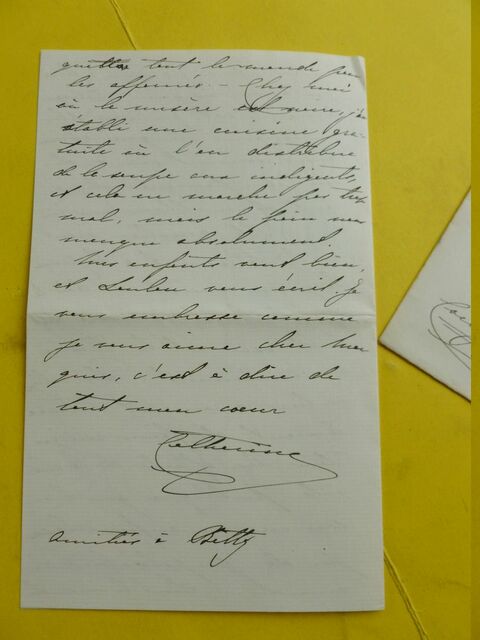 tout le monde pour
les affamés. - Chez moi
où la misère est noire, j'ai
établi une cuisine gra-
tuite où l'on distribue
de la soupe aux indigents,
et cela ne marche pas trop
mal, mais le pain nous
manque absolument.
Mes enfants vont bien,
et Loulou vous écrit. Je
vous embrasse comme
je vous aime cher Mar
quis, c'est à dire de
tout mon coeur
Catherine
amitiés à Betty